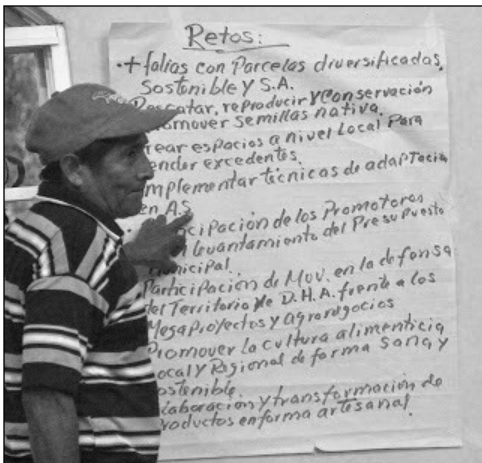 Retos:
+ falias con Parcelas diversificadas,
Sostenible y S.A.
Rescatar, reproducir y conservación
semillas nativa.
espacios a nivel Local Para
excedentes.
técnicas de adaptación
en A.S
de los Promotores
levantamiento del Presupuesto
Municipal.
Participación de Mov. en la defensa
del Territorio y de D.H.A. frente a los
MegaProyectos y agronegocios
Promover la cultura alimenticia
Local y Regional de forma Sana y
Sostenible.
y transformación de
Productos en forma artesanal.